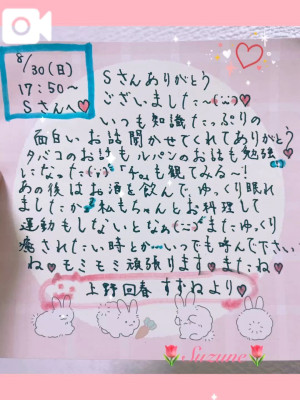 8/30(日)
17:50〜
Sさんへ♥
Sさんありがとう
ございました〜(¨)♥
いつも知識たっぷりの
面白いお話聞かせてくれてありがとう
タバコのお話もルパンのお話も勉強
になった(¨)" 観てみる〜!
あの後はお酒を飲んで、ゆっくり眠れ
ましたか 私もちゃんとお料理して
運動もしないとなぁ(¨)またゆっくり
癒されたい時とかいつでも呼んで下さい
ね♥モミモミ頑張ります♥またね♡
上野回春 すずねより♥
Suzune